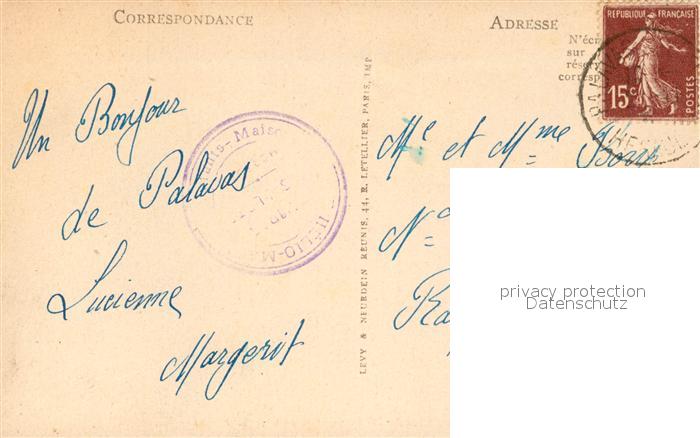 CORRESPONDANCE
ADRESSE
N'écri
sur
réser
corresp
RÉPUBLIQUE FRANÇAISE
15c
POSTES
Un Bonjour
de Palavas
Lucienne
Margerit
HELIO-M
LEVY & NEURDEIN RÉUNIS, 44, R. LETELLIER, PARIS, IMP
Mr et Mme
privacy protection
Datenschutz